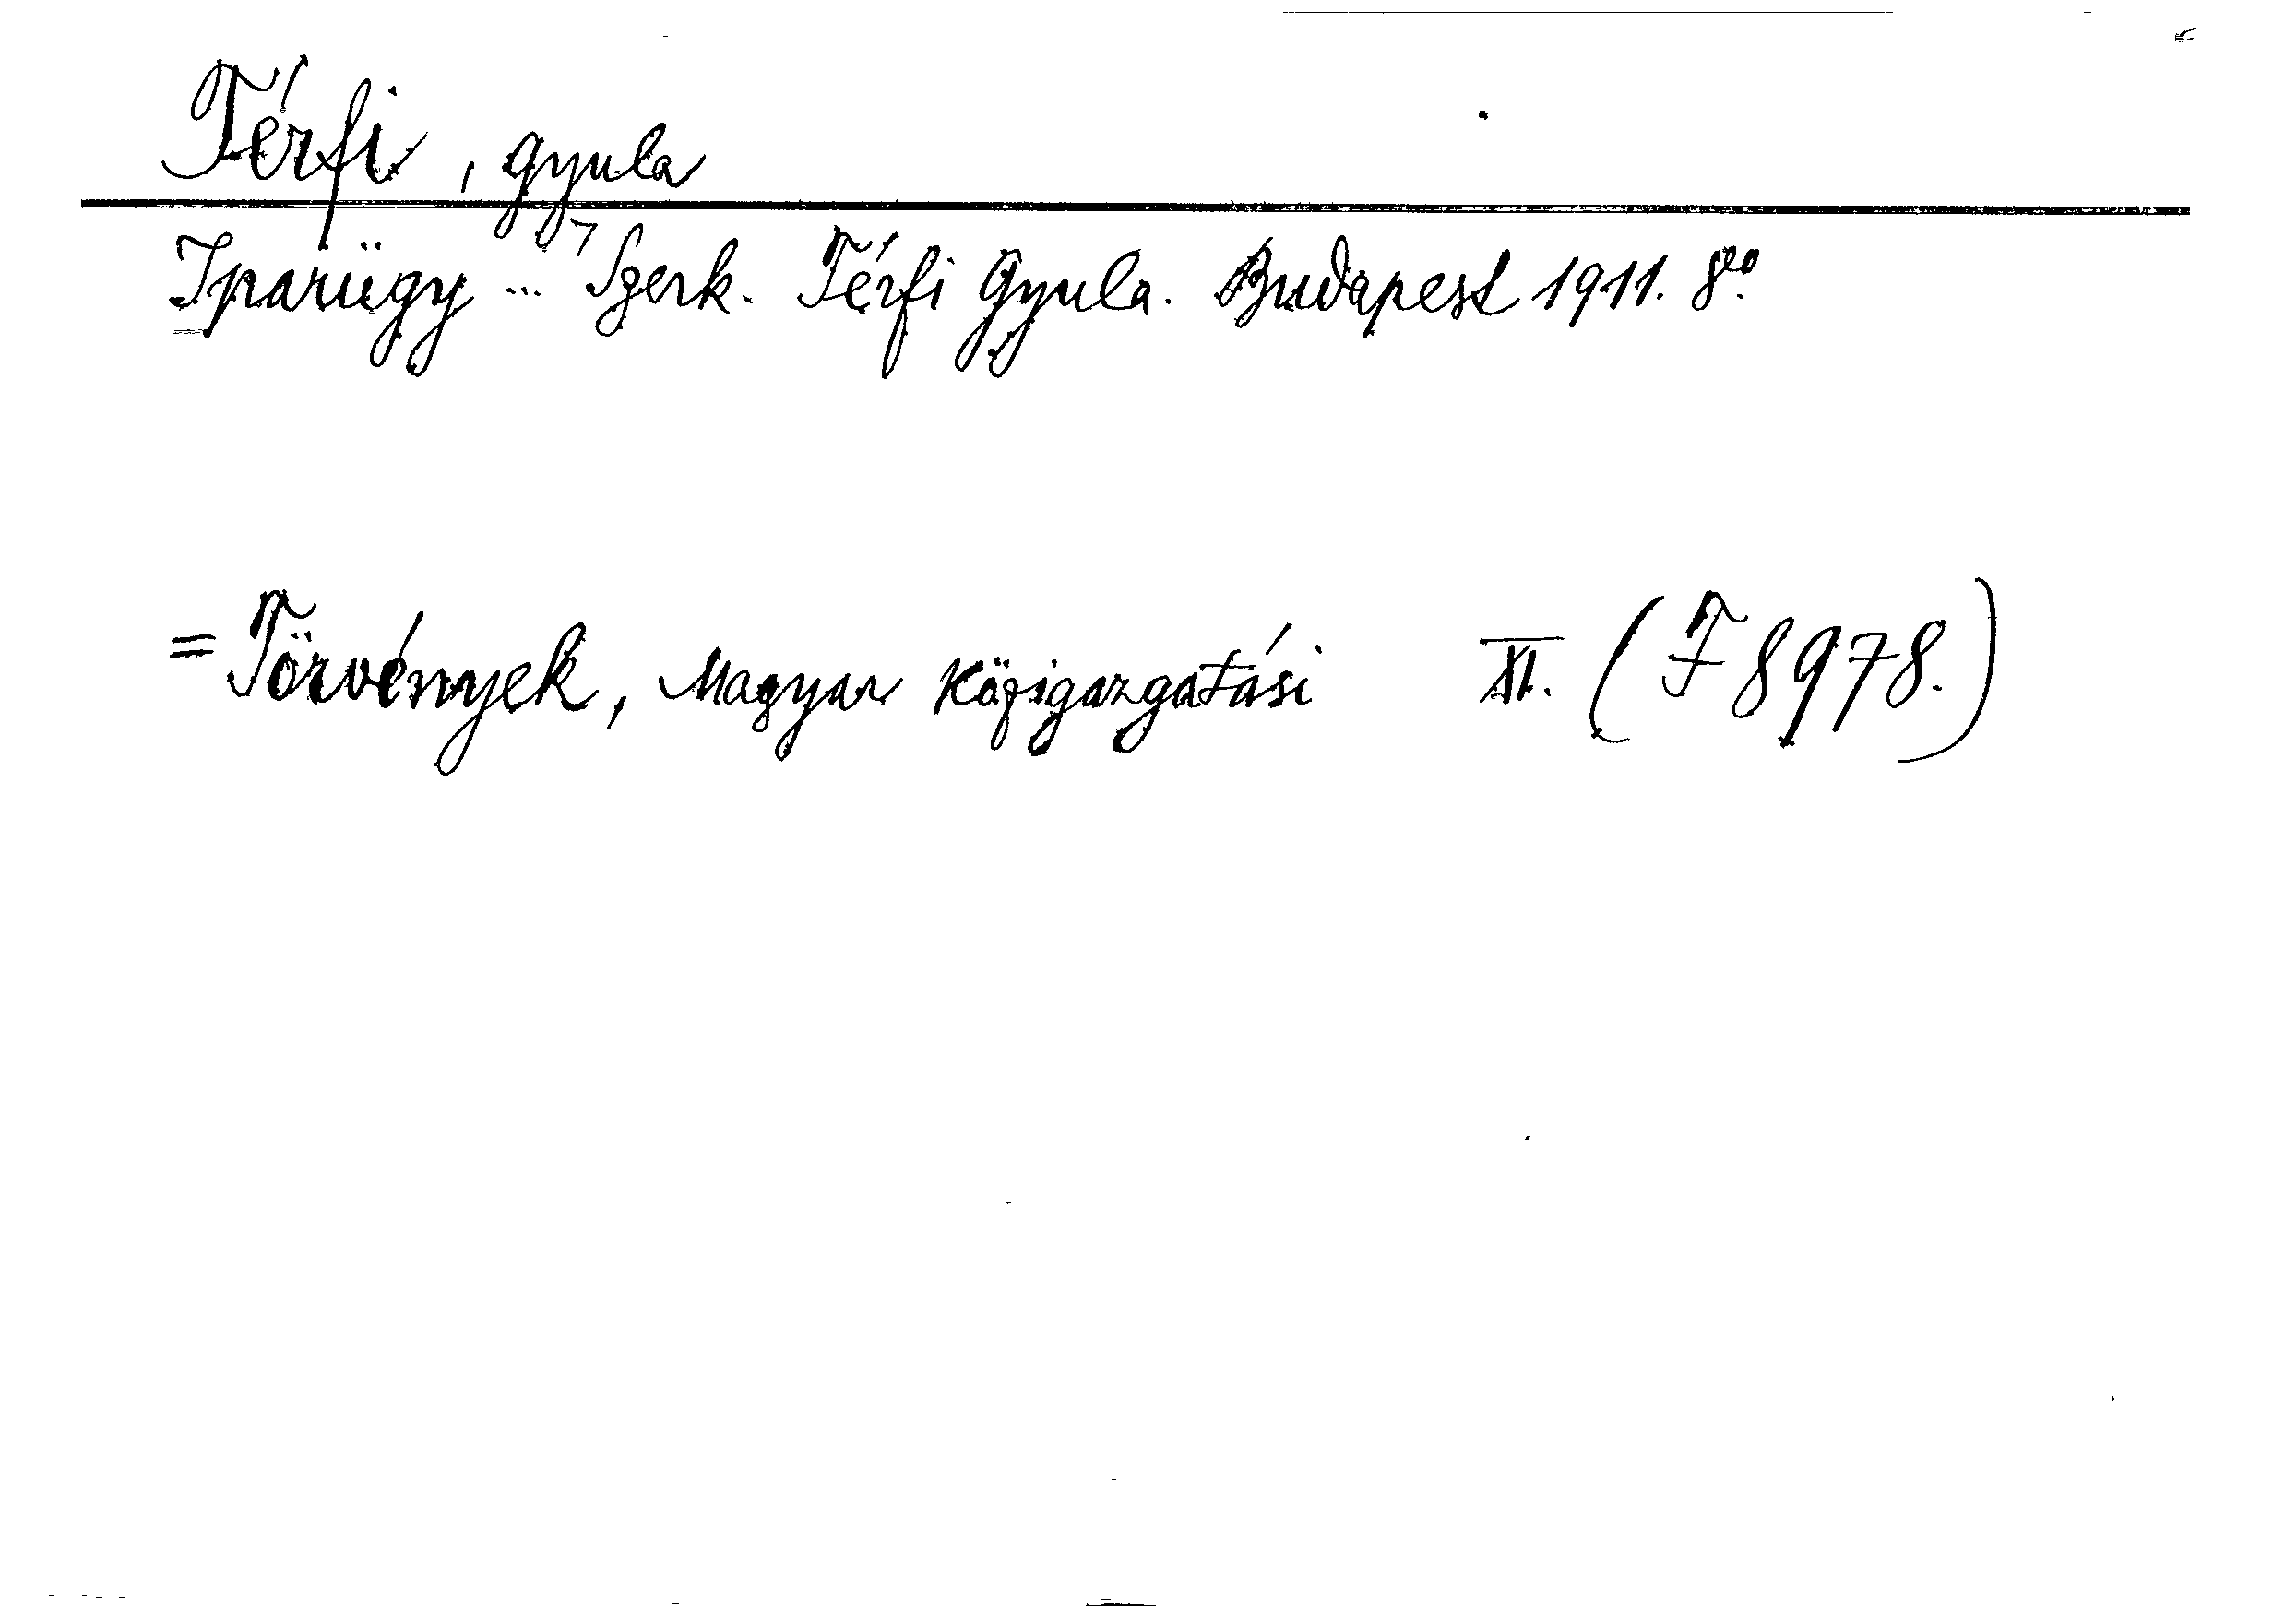 Térfi, Gyula
Iparügy ... Szerk. Térfi Gyula. Budapest 1911. 8º.
= Törvények, Magyar közigazgatási XI. (F 8978.)